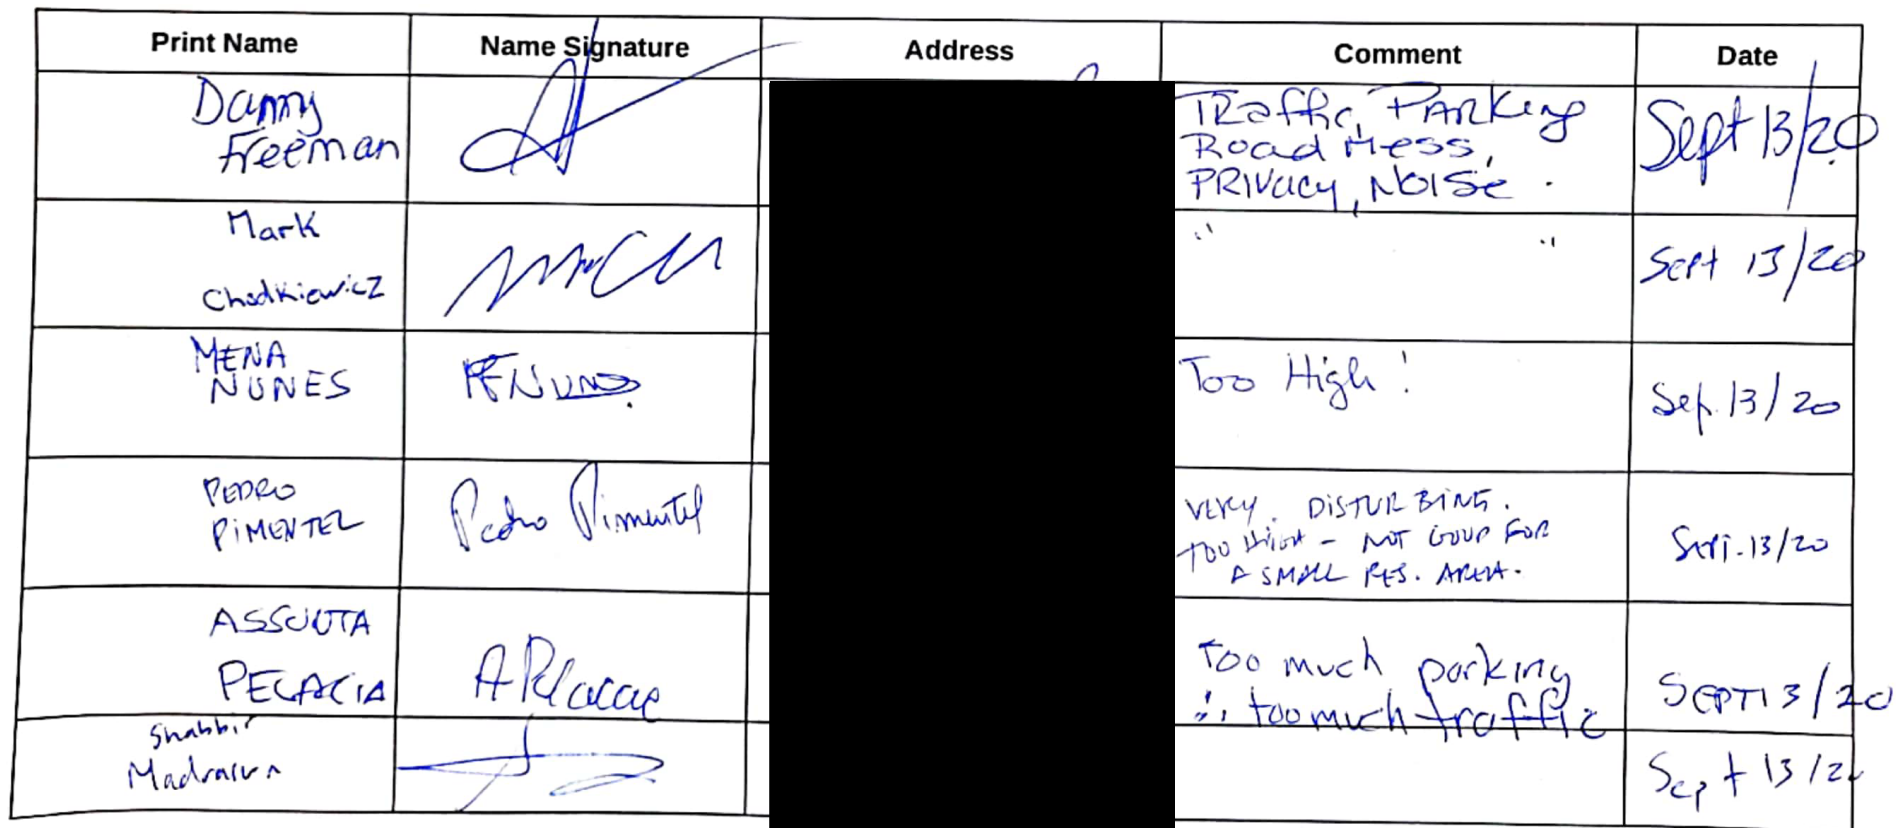 Print Name Name Signature Address Comment Date
Danny
Freeman
Traffic, Parking
Road Mess,
PRIVacy, NOISe.
Sept 13/20
Mark
Chodkiewicz
" "
Sept 13/20
MENA
NUNES
Too High!
Sep. 13/20
PEDRO
PIMENTEL
Pedro Pimentel
VERY DISTURBING.
TOO HIGH - NOT GOOD FOR
A SMALL RES. AREA.
Sept. 13/20
ASSUNTA
PELACIA
Too much parking
∴ too much traffic
SEPT 13/20
Shabbir
Sept 13/20